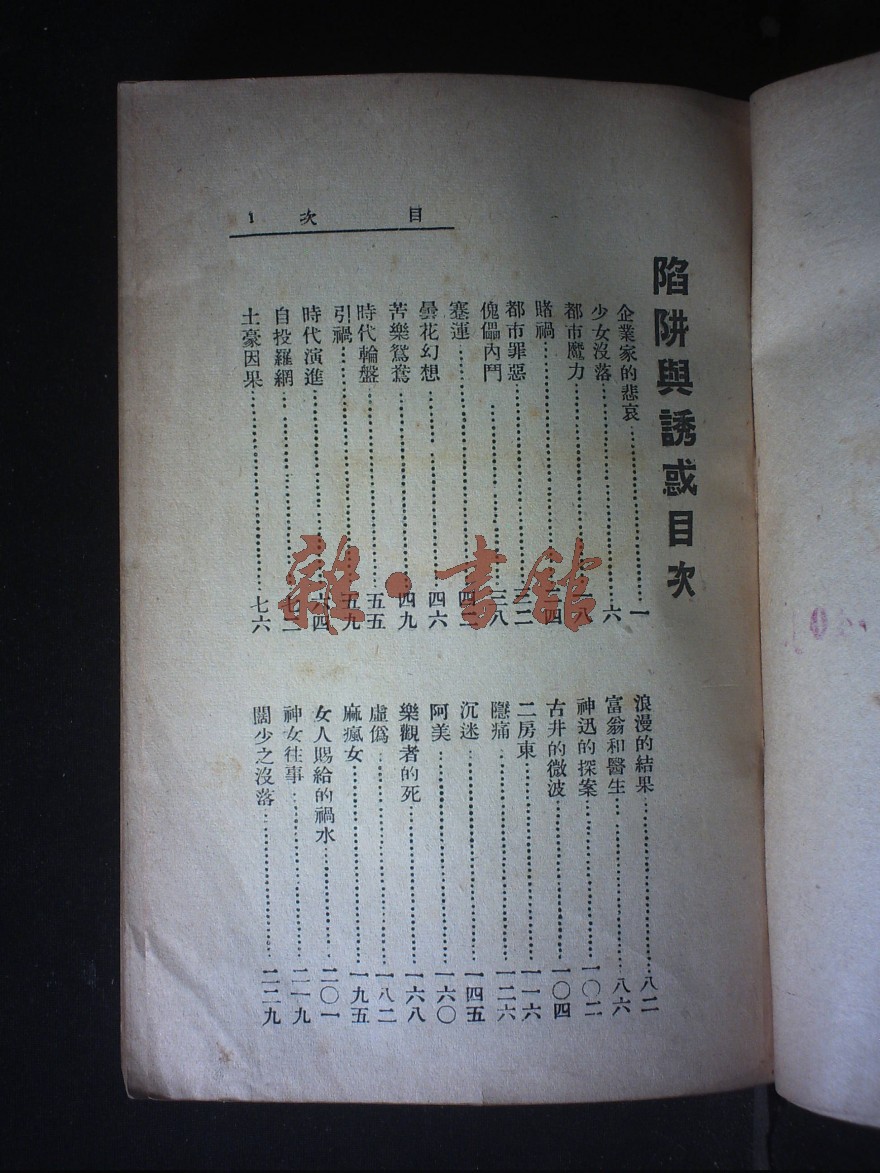 目次 1
陷阱與誘惑目次
企業家的悲哀 一
少女沒落 六
都市魔力 一八
賭禍 二四
都市罪惡 三二
傀儡內鬥 三八
蹇運 四二
曇花幻想 四六
苦樂鴛鴦 四九
時代輪盤 五五
引禍 五九
時代演進 六四
自投羅網 七二
土豪因果 七六
浪漫的結果 八二
富翁和醫生 八六
神迅的探案 一〇二
古井的微波 一〇四
二房東 一一六
隱痛 一二六
沉迷 一四五
阿美 一六〇
樂觀者的死 一六八
虛僞 一八二
麻瘋女 一九五
女人賜給的禍水 二〇一
神女往事 二一九
闊少之沒落 二二九
雜·書館